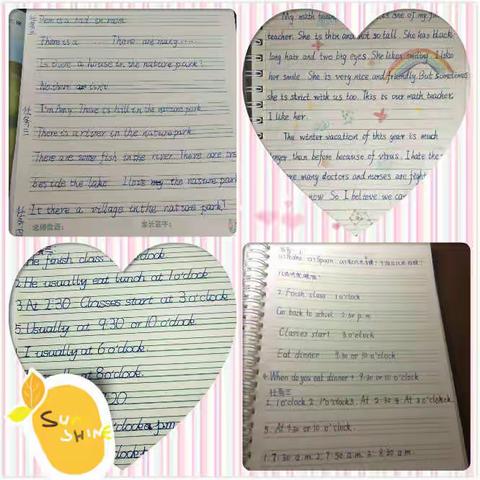 There is a ... There are many ...
Is there a house in the nature park?
No, there isn't.
I'm Amy. There is hill in the nature park.
There is a river in the nature park.
There are some fish in the river. There are
beside the lake. I love the nature park
It there a village in the nature park?
老师寄语: 家长签字:
My math teacher is one of my
teacher. She is thin and not so tall. She has black
long hair and two big eyes. She likes smiling. I like
her smile. She is very nice and friendly. But sometimes
she is strict with us too. This is our math teacher,
I like her.
The winter vacation of this year is much
than before because of virus. I hate the
are many doctors and nurses are
now. So I believe we can
finish class o'clock
2. He usually eat lunch at 1 o'clock
3. At 2:30 Classes start at 3 o'clock
5. Usually at 9:30 or 10 o'clock
I usually at 6 o'clock.
at 8 o'clock
20
o'clock pm
o'clock
SUN
SHINE
Spain
2. Finish class 1 o'clock
Go back to school 2:30 p.m.
Classes start 3 o'clock
Eat dinner 9:30 or 10 o'clock
4. When do you eat dinner? 9:30 or 10 o'clock
任务三
1. 1 o'clock 2. 1 o'clock 3. At 2:30 4. At 3 o'clock
5. At 9:30 or 10 o'clock.
1. 7:30 a.m. 2. 7:50 a.m. 3. 8:20 a.m.